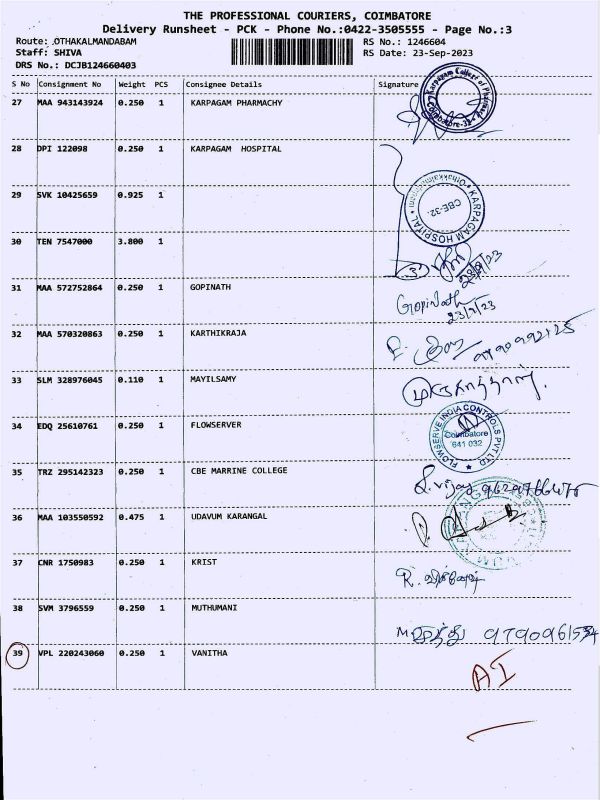 THE PROFESSIONAL COURIERS, COIMBATORE
Delivery Runsheet - PCK - Phone No.:0422-3505555 - Page No.:3
Route: .OTHAKALMANDABAM RS No.: 1246604
Staff: SHIVA RS Date: 23-Sep-2023
DRS No.: DCJB124660403
S No Consignment No Weight PCS Consignee Details Signature
27 MAA 943143924 0.250 1 KARPAGAM PHARMACHY
Karpagam College of Pharmacy Coimbatore-32
28 DPI 122098 0.250 1 KARPAGAM HOSPITAL
29 SVK 10425659 0.925 1
KARPAGAM HOSPITAL CBE-32.
30 TEN 7547000 3.800 1
31 MAA 572752864 0.250 1 GOPINATH Gopinath
32 MAA 570320863 0.250 1 KARTHIKRAJA
33 SLM 328976045 0.110 1 MAYILSAMY
34 EDQ 25610761 0.250 1 FLOWSERVER
FLOWSERVE INDIA CONTROLS PVT LTD Coimbatore 641 032
35 TRZ 295142323 0.250 1 CBE MARRINE COLLEGE
36 MAA 103550592 0.475 1 UDAVUM KARANGAL
37 CNR 1750983 0.250 1 KRIST
38 SVM 3796559 0.250 1 MUTHUMANI
39 VPL 220243060 0.250 1 VANITHA
AI